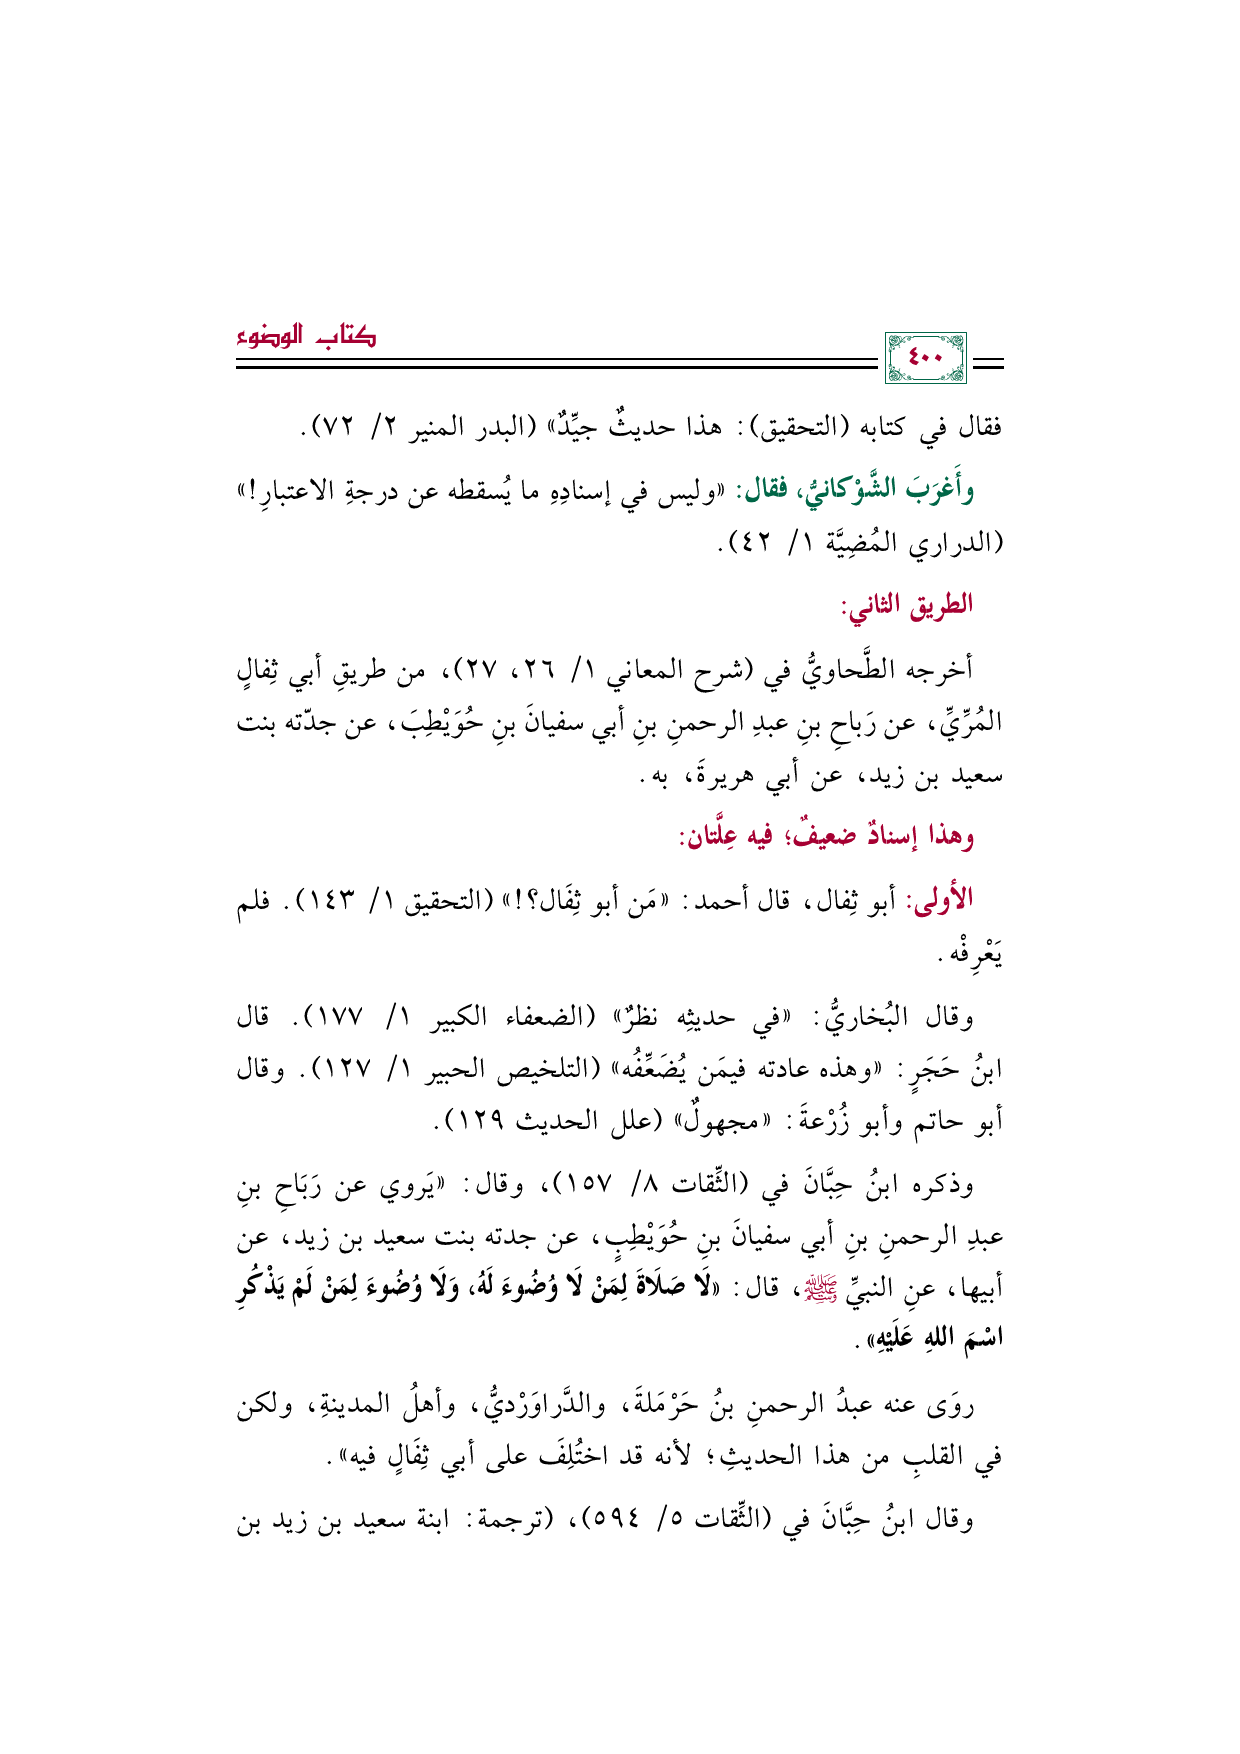 كتاب الوضوء
٤٠٠
فقال في كتابه (التحقيق): هذا حديثٌ جيِّدٌ» (البدر المنير ٢/ ٧٢).
وأَغرَبَ الشَّوْكانيُّ، فقال: «وليس في إسنادِهِ ما يُسقطه عن درجةِ الاعتبارِ!»
(الدراري المُضِيَّة ١/ ٤٢).
الطريق الثاني:
أخرجه الطَّحاويُّ في (شرح المعاني ١/ ٢٦، ٢٧)، من طريقِ أبي ثِفالٍ
المُرِّيِّ، عن رَباحِ بنِ عبدِ الرحمنِ بنِ أبي سفيانَ بنِ حُوَيْطِبَ، عن جدّته بنت
سعيد بن زيد، عن أبي هريرةَ، به.
وهذا إسنادٌ ضعيفٌ؛ فيه عِلَّتان:
الأولى: أبو ثِفال، قال أحمد: «مَن أبو ثِفَال؟!» (التحقيق ١/ ١٤٣). فلم
يَعْرِفْه.
وقال البُخاريُّ: «في حديثِه نظرٌ» (الضعفاء الكبير ١/ ١٧٧). قال
ابنُ حَجَرٍ: «وهذه عادته فيمَن يُضَعِّفُه» (التلخيص الحبير ١/ ١٢٧). وقال
أبو حاتم وأبو زُرْعةَ: «مجهولٌ» (علل الحديث ١٢٩).
وذكره ابنُ حِبَّانَ في (الثِّقات ٨/ ١٥٧)، وقال: «يَروي عن رَبَاحِ بنِ
عبدِ الرحمنِ بنِ أبي سفيانَ بنِ حُوَيْطِبٍ، عن جدته بنت سعيد بن زيد، عن
أبيها، عنِ النبيِّ ﷺ، قال: «لَا صَلَاةَ لِمَنْ لَا وُضُوءَ لَهُ، وَلَا وُضُوءَ لِمَنْ لَمْ يَذْكُرِ
اسْمَ اللهِ عَلَيْهِ».
روَى عنه عبدُ الرحمنِ بنُ حَرْمَلةَ، والدَّراوَرْديُّ، وأهلُ المدينةِ، ولكن
في القلبِ من هذا الحديثِ؛ لأنه قد اختُلِفَ على أبي ثِفَالٍ فيه».
وقال ابنُ حِبَّانَ في (الثِّقات ٥/ ٥٩٤)، (ترجمة: ابنة سعيد بن زيد بن